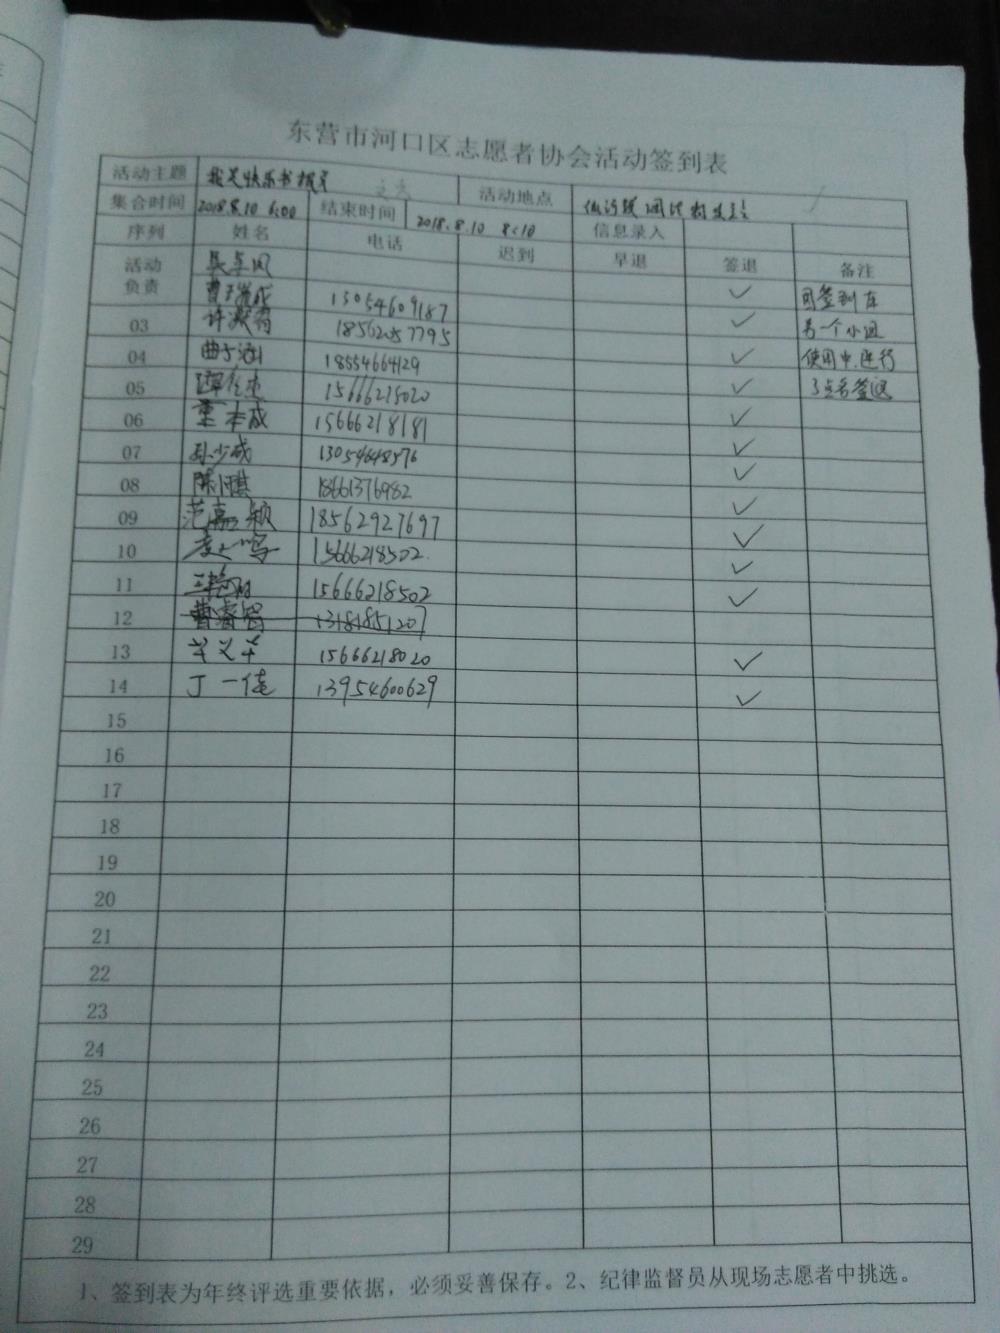 东营市河口区志愿者协会活动签到表
活动主题 我是快乐书报员 活动地点
集合时间 2018.8.10 6:00 结束时间 2018.8.10 8:10
序列 姓名 电话 迟到 信息录入
早退 签退 备注
活动负责 吴卓凤
曹瑞成 13054609187 ✓ 因签到在
03 许淑莉 18562057795 ✓ 另一个小组
04 曲 18554664129 ✓ 使用中,进行
05 15666215020 ✓ 了点名签退
06 本成 15666218181 ✓
07 孙少成 13054648576 ✓
08 陈 18661376982 ✓
09 范嘉颖 18562927697 ✓
10 15666218502. ✓
11 15666218502 ✓
12 曹睿智 13181851207
13 15666218020 ✓
14 丁一佳 13954600629 ✓
15
16
17
18
19
20
21
22
23
24
25
26
27
28
29
1、签到表为年终评选重要依据，必须妥善保存。2、纪律监督员从现场志愿者中挑选。